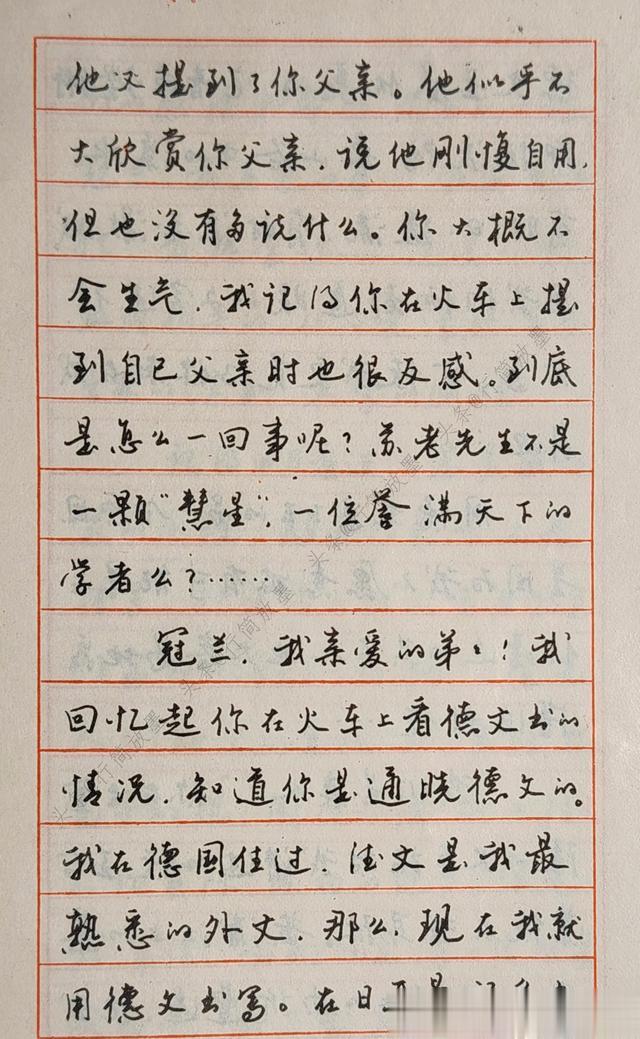 他又提到了你父亲。他似乎不
大欣赏你父亲，说他刚愎自用，
但也没有多说什么。你大概不
会生气，我记得你在火车上提
到自己父亲时也很反感。到底
是怎么一回事呢？苏老先生不是
一颗“慧星”，一位誉满天下的
学者么？……
冠兰，我亲爱的弟々！我
回忆起你在火车上看德文书的
情况，知道你是通晓德文的。
我在德国住过，德文是我最
熟悉的外文，那么，现在我就
用德文书写。在日
头条@行简放墨
头条@行简放墨
头条@行简放墨
头条@行简放墨